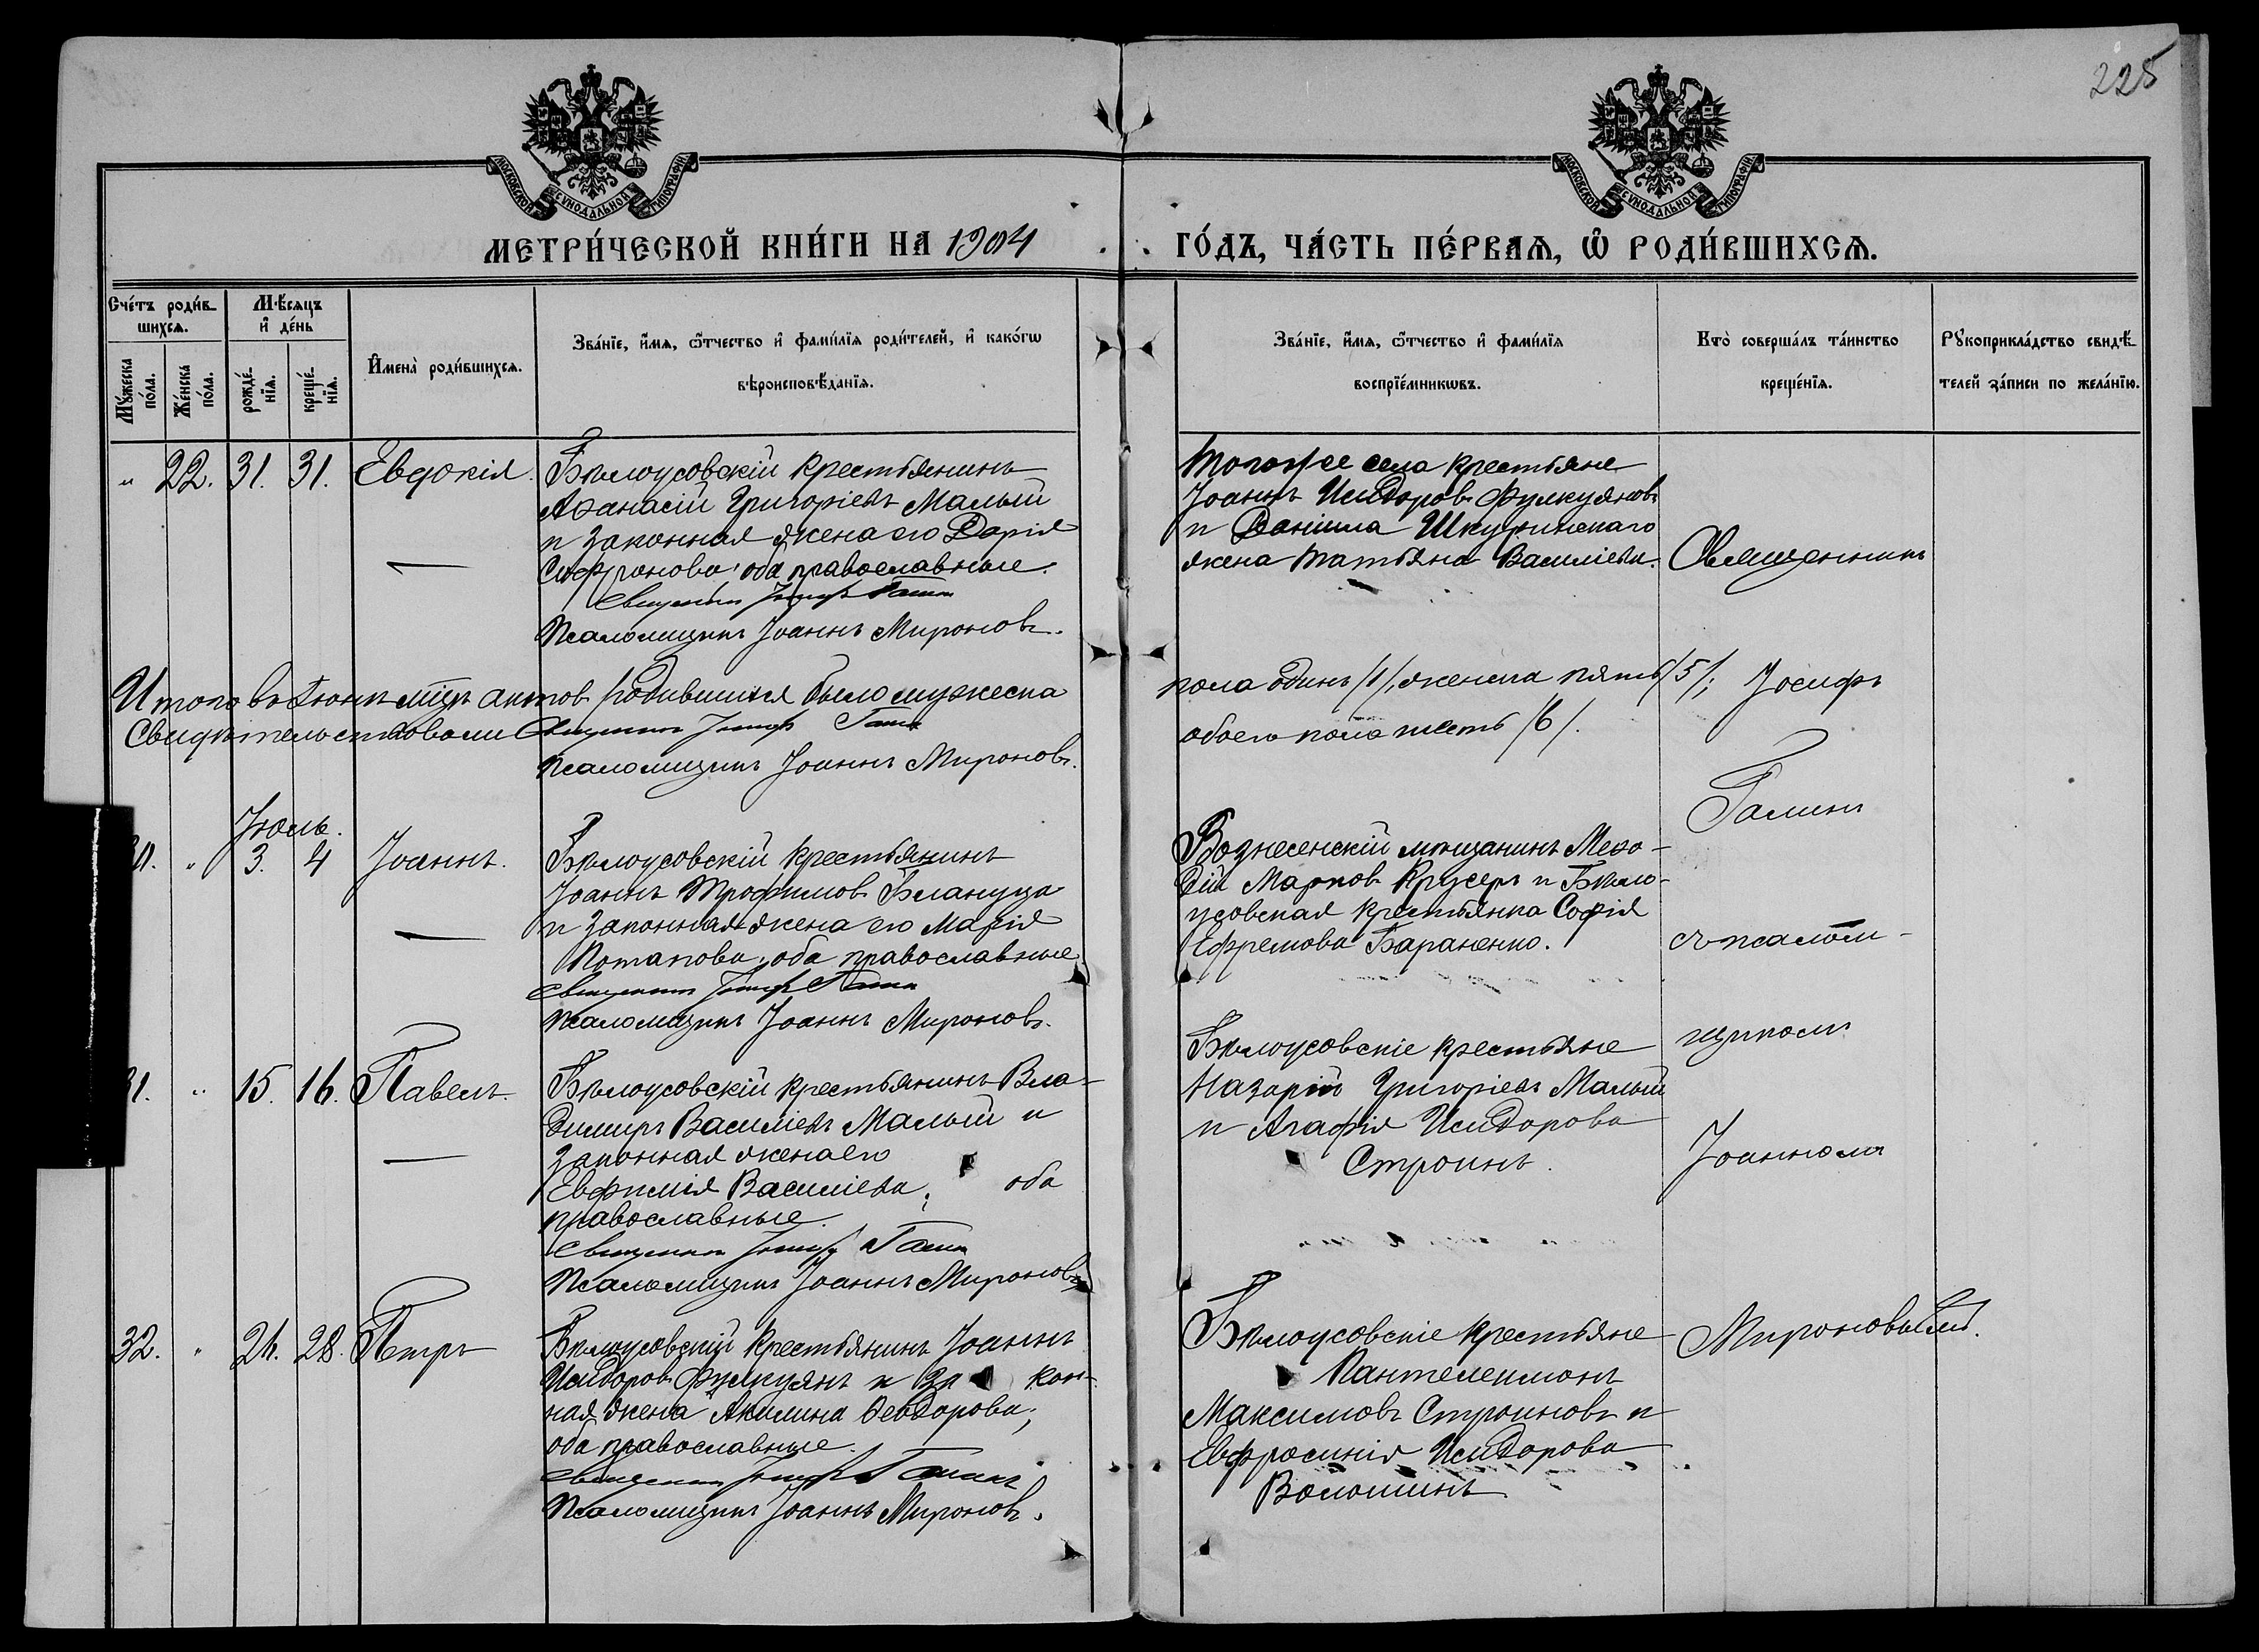 225
МОСКОВСКОЙ СѴНОДАЛЬНОЙ ТИПОГРАФІИ
МОСКОВСКОЙ СѴНОДАЛЬНОЙ ТИПОГРАФІИ
МЕТРИ́ЧЕСКОЙ КНИ́ГИ НА 1904
ГО́ДЪ, ЧА́СТЬ ПЕ́РВАѦ, Ѡ҆ РОДИ́ВШИХСѦ.
Сче́тъ роди́в-
шихсѧ.
Мѣ́сѧцъ
и҆ де́нь
Мꙋ́жеска
по́ла.
Же́нска
по́ла.
рожде́-
нїѧ.
креще́-
нїѧ.
И҆мена̀ роди́вшихсѧ.
Зва́нїе, и҆́мѧ, ѻ҆́тчество и҆ фами́лїѧ роди́телей, и҆ како́гѡ
вѣроисповѣ́данїѧ.
Зва́нїе, и҆́мѧ, ѻ҆́тчество и҆ фами́лїѧ
воспрїе́мникѡвъ.
Кто̀ соверша́лъ та́инство
креще́нїѧ.
Рꙋкоприкла́дство свидѣ́-
телей за́писи по жела́нїю.
" 22. 31. 31. Евдокія.
Бѣлоусовскій крестьянинъ
Аѳанасій Григоріевъ Малый
и законная жена его Дарія
Софронова; оба православные.
Священникъ Іосифъ Галинъ
Псаломщикъ Іоаннъ Мироновъ.
Того же села крестьяне
Іоаннъ Исидоровъ Фулкуяновъ
и Даніила Шкуринскаго
жена Татьяна Василіева.
Священникъ
Итого въ Іюнѣ мѣс. актовъ родившихся было мужеска
Свидѣтельствовали Священникъ Іосифъ Галинъ
Псаломщикъ Іоаннъ Мироновъ.
пола одинъ /1/, женска пять /5/;
обоего пола шесть /6/.
Іосифъ
Галинъ
Іюль.
" 3. 4 Іоаннъ.
Бѣлоусовскій крестьянинъ
Іоаннъ Трофимовъ Блануца
и законная жена его Марія
Потапова; оба православные.
Священникъ Іосифъ Галинъ
Псаломщикъ Іоаннъ Мироновъ.
Вознесенскій мѣщанинъ Меѳо-
дій Марковъ Крусеръ и Бѣло-
усовская крестьянка Софія
Ефремова Бараненко.
съ псалом-
щикомъ
" 15. 16. Павелъ.
Бѣлоусовскій крестьянинъ Вла-
димиръ Василіевъ Малый и
законная жена его
Евфимія Василіева; оба
православные.
Священникъ Іосифъ Галинъ
Псаломщикъ Іоаннъ Мироновъ
Бѣлоусовскіе крестьяне
Назарій Григоріевъ Малый
и Агафія Исидорова
Строинъ.
Іоанномъ
32. " 28. Петръ
Бѣлоусовскій крестьянинъ Іоаннъ
Исидоровъ Фулкуянъ и за кон-
ная жена Акилина Ѳеодорова;
оба православные.
Священникъ Іосифъ Галинъ
Псаломщикъ Іоаннъ Мироновъ.
Бѣлоусовскіе крестьяне
Пантелеимонъ
Максимовъ Строиновъ и
Евфросинія Исидорова
Волошинъ
Мироновымъ.